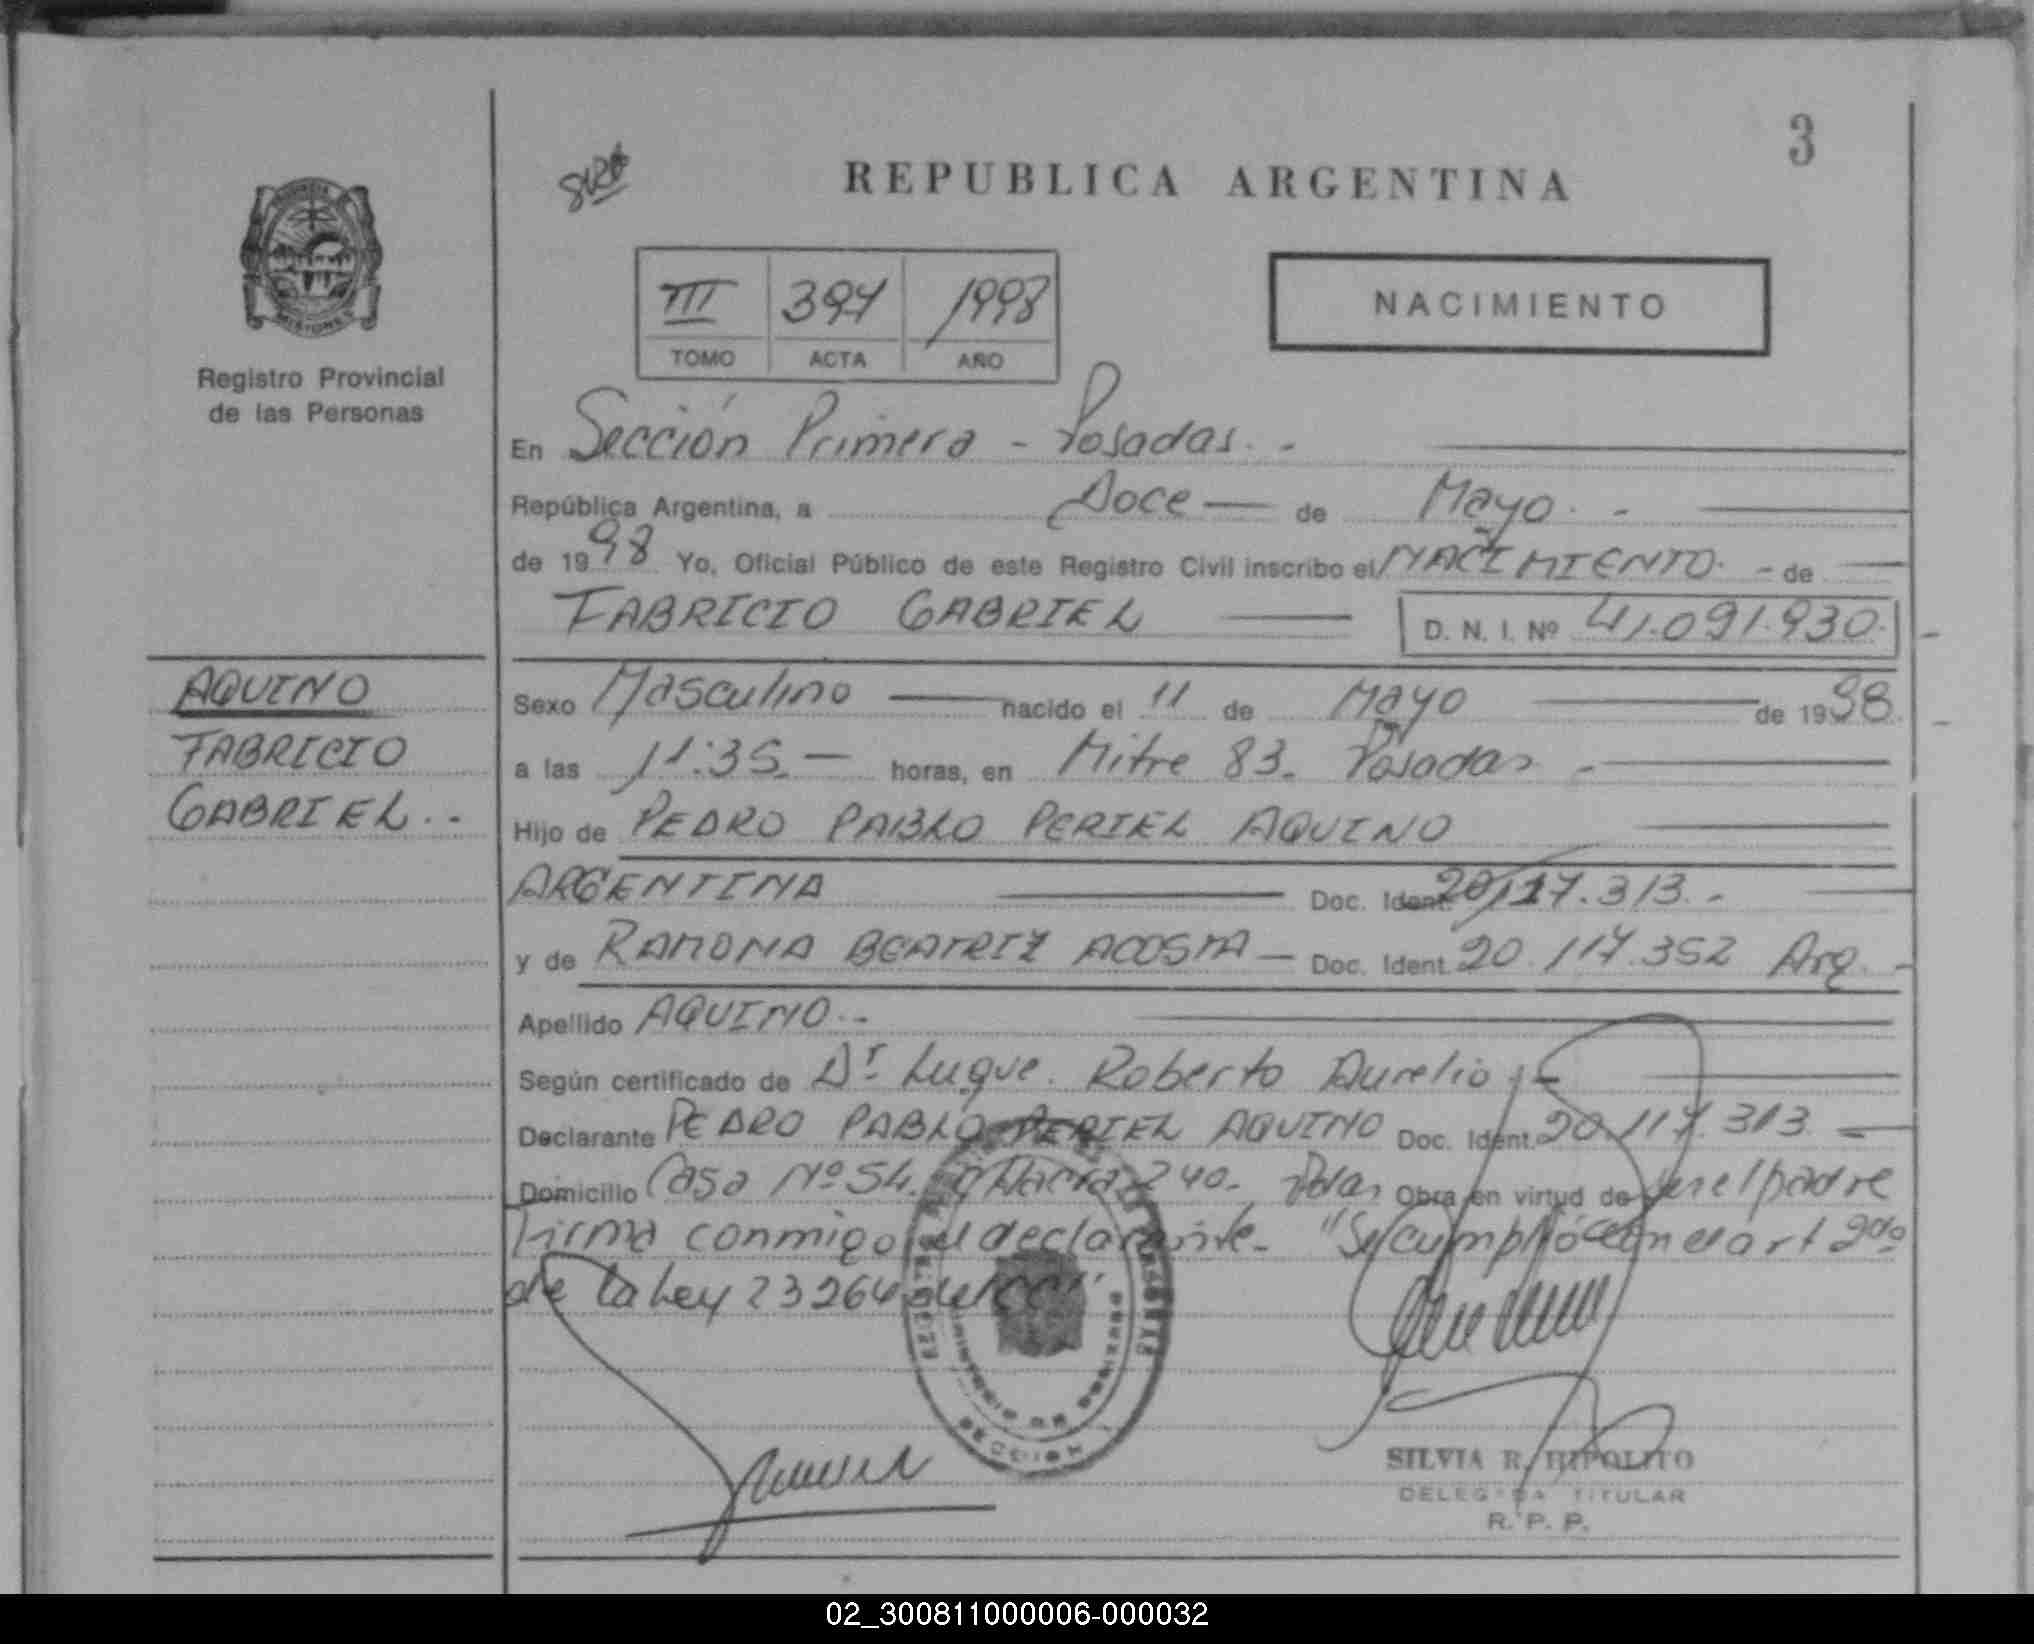 3
REPUBLICA ARGENTINA
NACIMIENTO
III 394 1998
TOMO ACTA AÑO
MISIONES
Registro Provincial
de las Personas
En Sección Primera - Posadas. -
República Argentina, a Doce — de Mayo. -
de 1998 Yo, Oficial Público de este Registro Civil inscribo el NACIMIENTO. - de
FABRICIO GABRIEL — D. N. I. Nº 41.091.930.
AQUINO
FABRICIO
GABRIEL. -
Sexo Masculino — nacido el 11 de Mayo — de 1998.
a las 11:35. — horas, en Mitre 83. Posadas -
Hijo de PEDRO PABLO PERIEL AQUINO
ARGENTINA — Doc. Ident. 20.117.313. -
y de RAMONA BEATRIZ ACOSTA — Doc. Ident. 20.117.352 Arg. -
Apellido AQUINO. -
Según certificado de Dr Luque. Roberto Aurelio. -
Declarante PEDRO PABLO PERIEL AQUINO Doc. Ident. 20.117.313 —
Domicilio Casa Nº 54. Chacra 240. Pdas Obra en virtud de ser el padre
Firma conmigo el declarante. "Se cumplió con el art 2do
de la Ley 23264
MINISTERIO DE GOBIERNO
SECCION 1
SILVIA R. HIPOLITO
DELEGADA TITULAR
R. P. P.
02_300811000006-000032